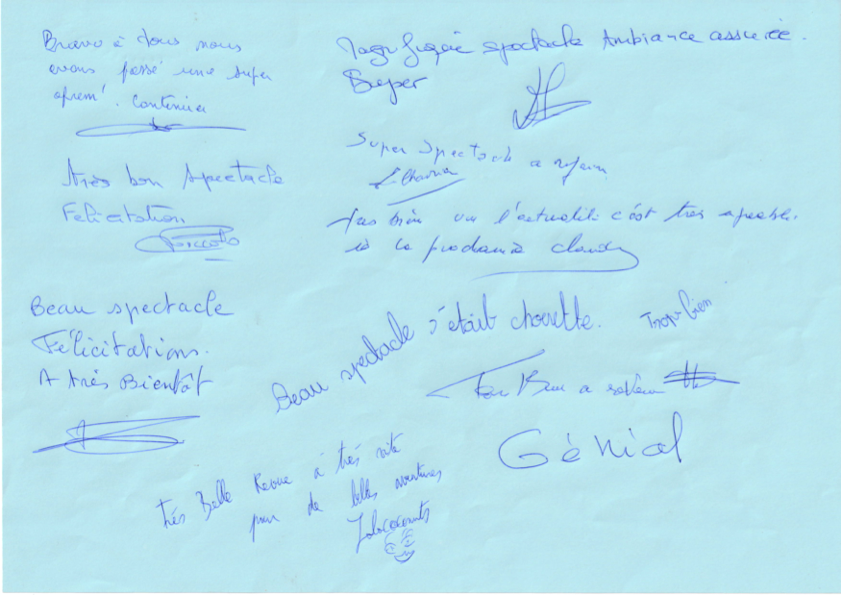 Bravo à tous nous
avons passé une super
aprem'. Continuer
Magnifique spectacle Ambiance assurée.
Super
Super Spectacle a refaire
très bon spectacle
Félicitation
vu l'actualité c'est très agréable.
à la prochaine
Beau spectacle
Félicitations.
A très Bientôt
Beau spectacle c'était chouette.
Trop bien
Très Bien a
Génial
très Belle Revue à très vite
pour de belles aventures